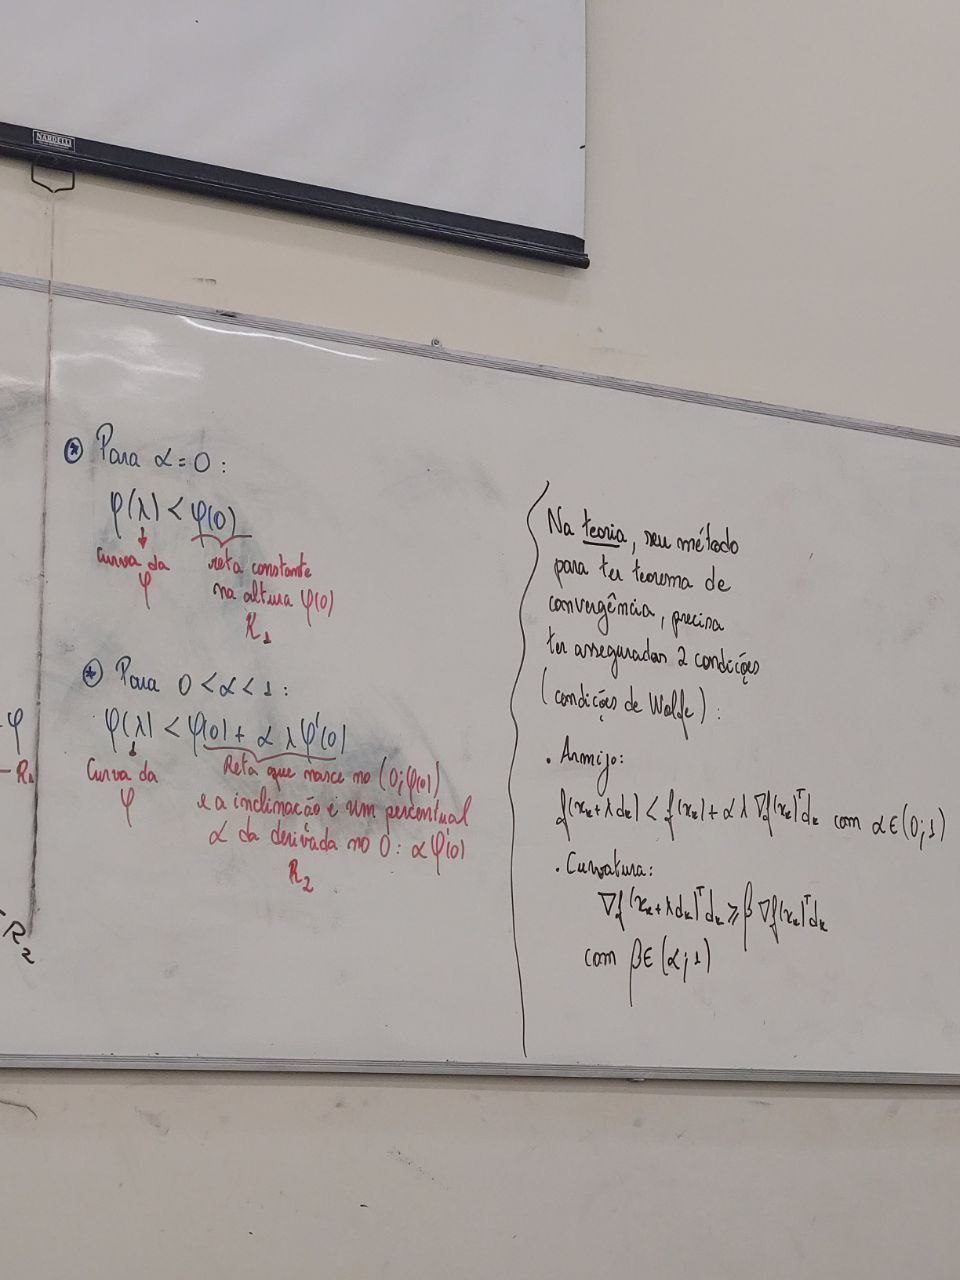 NARDELLI
* Para α = 0 :
φ(λ) < φ(0)
curva da φ
reta constante
na altura φ(0)
R₁
* Para 0 < α < 1 :
φ(λ) < φ(0) + α λ φ'(0)
Curva da φ
Reta que nasce no (0; φ(0))
e a inclinação é um percentual
α da derivada no 0 : α φ'(0)
R₂
φ
R₁
R₂
Na teoria, seu método
para ter teorema de
convergência, precisa
ter asseguradas 2 condições
(condições de Wolfe) :
. Armijo:
f(xₖ + λdₖ) < f(xₖ) + α λ ∇f(xₖ)ᵀdₖ com α ∈ (0; 1)
. Curvatura:
∇f(xₖ + λdₖ)ᵀdₖ ⩾ β ∇f(xₖ)ᵀdₖ
com β ∈ (α; 1)